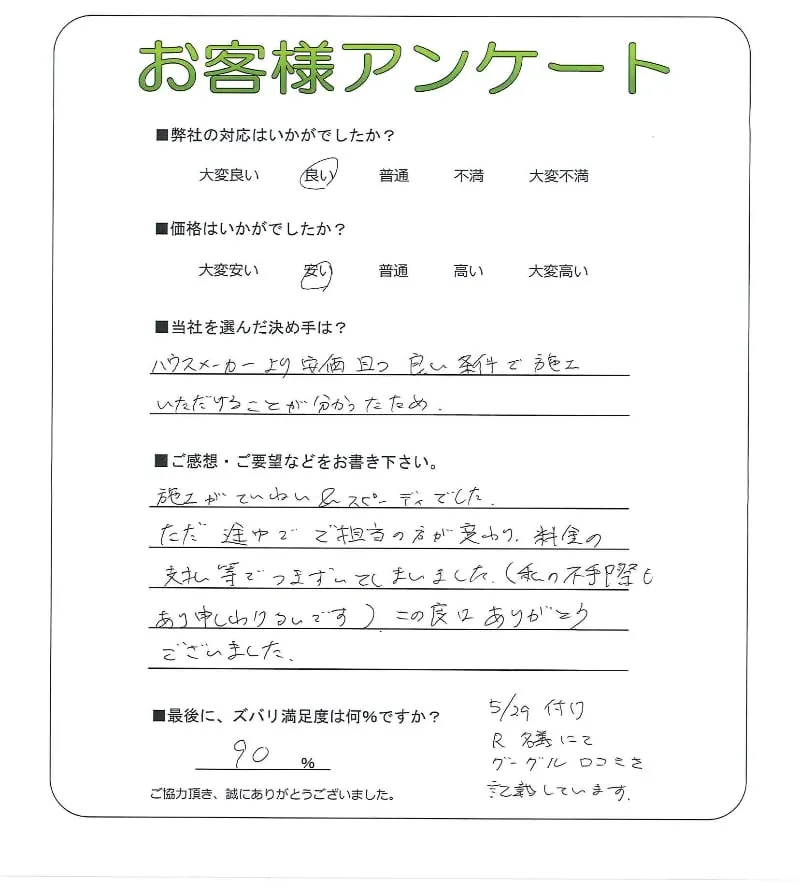 お客様アンケート
■弊社の対応はいかがでしたか？
大変良い 良い 普通 不満 大変不満
■価格はいかがでしたか？
大変安い 安い 普通 高い 大変高い
■当社を選んだ決め手は？
ハウスメーカーより安価且つ良い条件で施工
いただけることが分かったため.
■ご感想・ご要望などをお書き下さい。
施工がていねい&スピーディでした.
ただ途中でご担当の方が変わり、料金の
支払い等でつまずいてしまいました.(私の不手際も
あり申しわけるいです)この度はありがとう
ございました.
■最後に、ズバリ満足度は何%ですか？
90 %
ご協力頂き、誠にありがとうございました。
5/29 付け
R 名義にて
グーグル口コミを
記載しています.